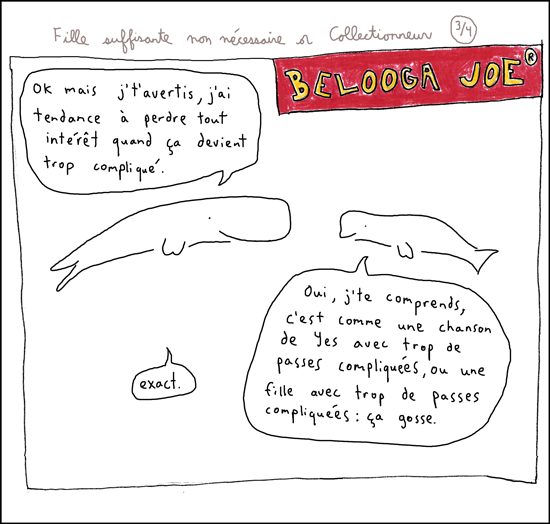 Fille suffisante non nécessaire or Collectionneur 3/4
BELOOGA JOE ®
OK mais j't'avertis, j'ai
tendance à perdre tout
intérêt quand ça devient
trop compliqué.
Oui, j'te comprends,
c'est comme une chanson
de Yes avec trop de
passes compliquéés, ou une
fille avec trop de passes
compliqueés : ça gosse.
exact.